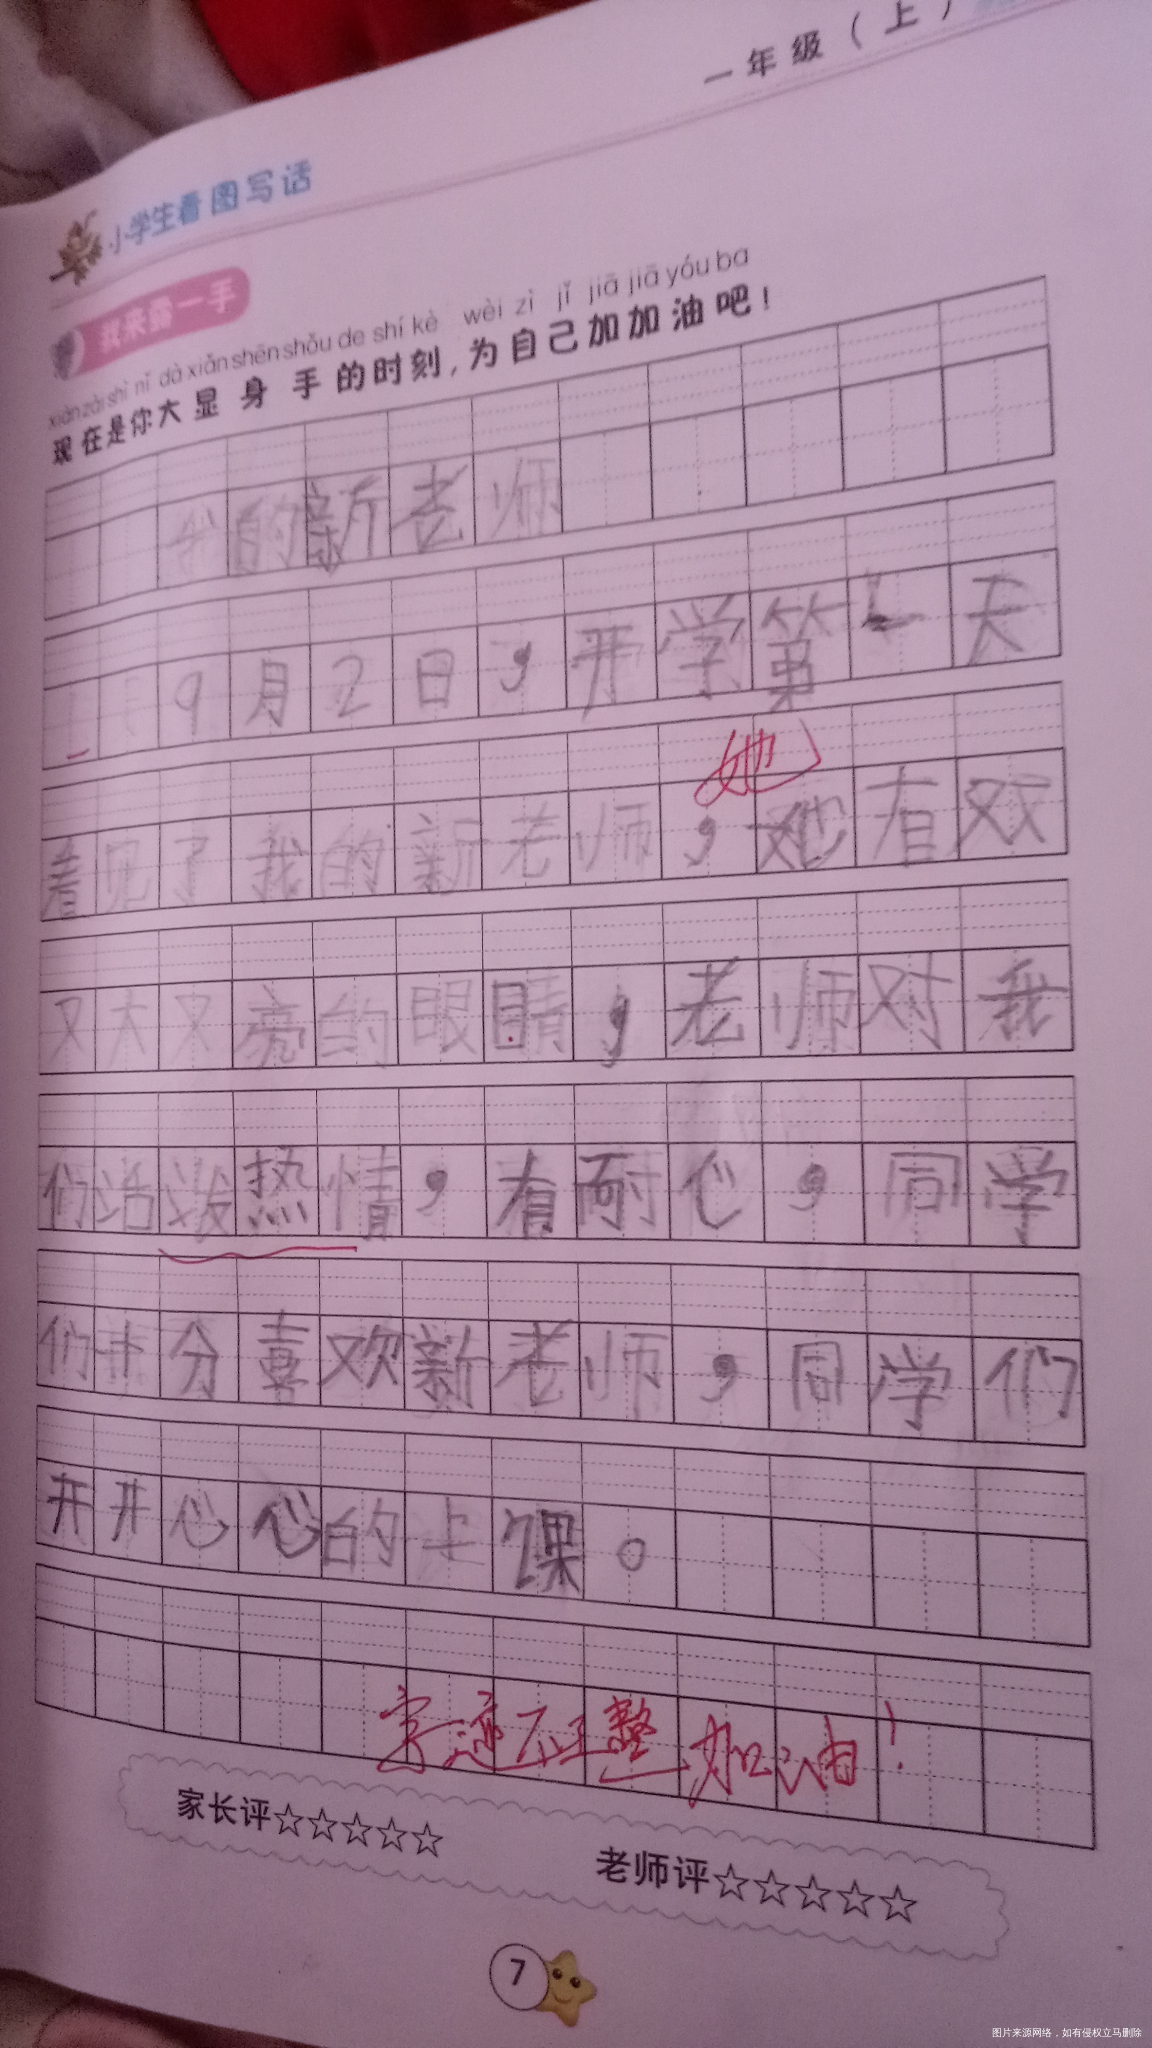 一年级（上）
小学生看图写话
我来露一手
xiàn zài shì nǐ dà xiǎn shēn shǒu de shí kè wèi zì jǐ jiā jiā yóu ba
现在是你大显身手的时刻，为自己加加油吧！
我的新老师
9月2日，开学第一天
她
看见了我的新老师，她有双
又大又亮的眼睛，老师对我
们活泼热情，有耐心，同学
们十分喜欢新老师，同学们
开开心心的上课。
字迹不工整，加油！
家长评☆☆☆☆☆
老师评☆☆☆☆☆
7
图片来源网络，如有侵权立马删除